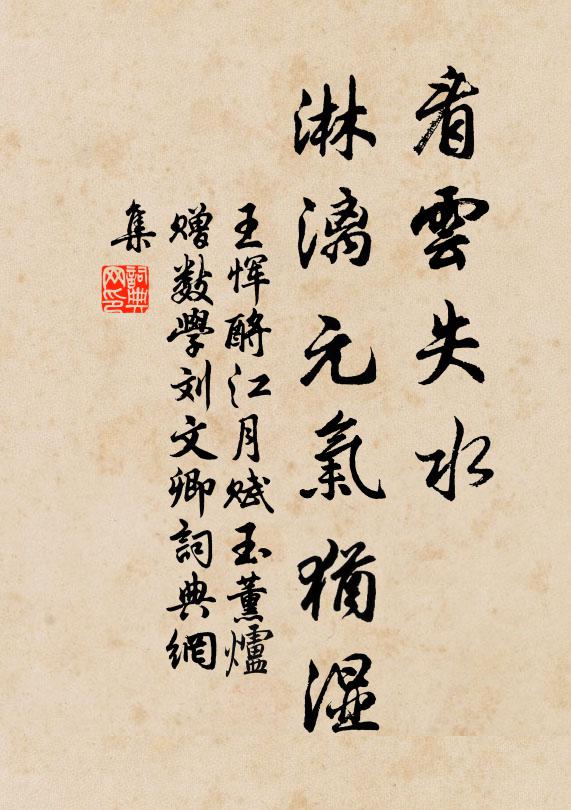 看雲失水
淋漓元氣猶湿
王恽酹江月赋玉薰爐
赠数學刘文卿詞典網
集
詞典网印